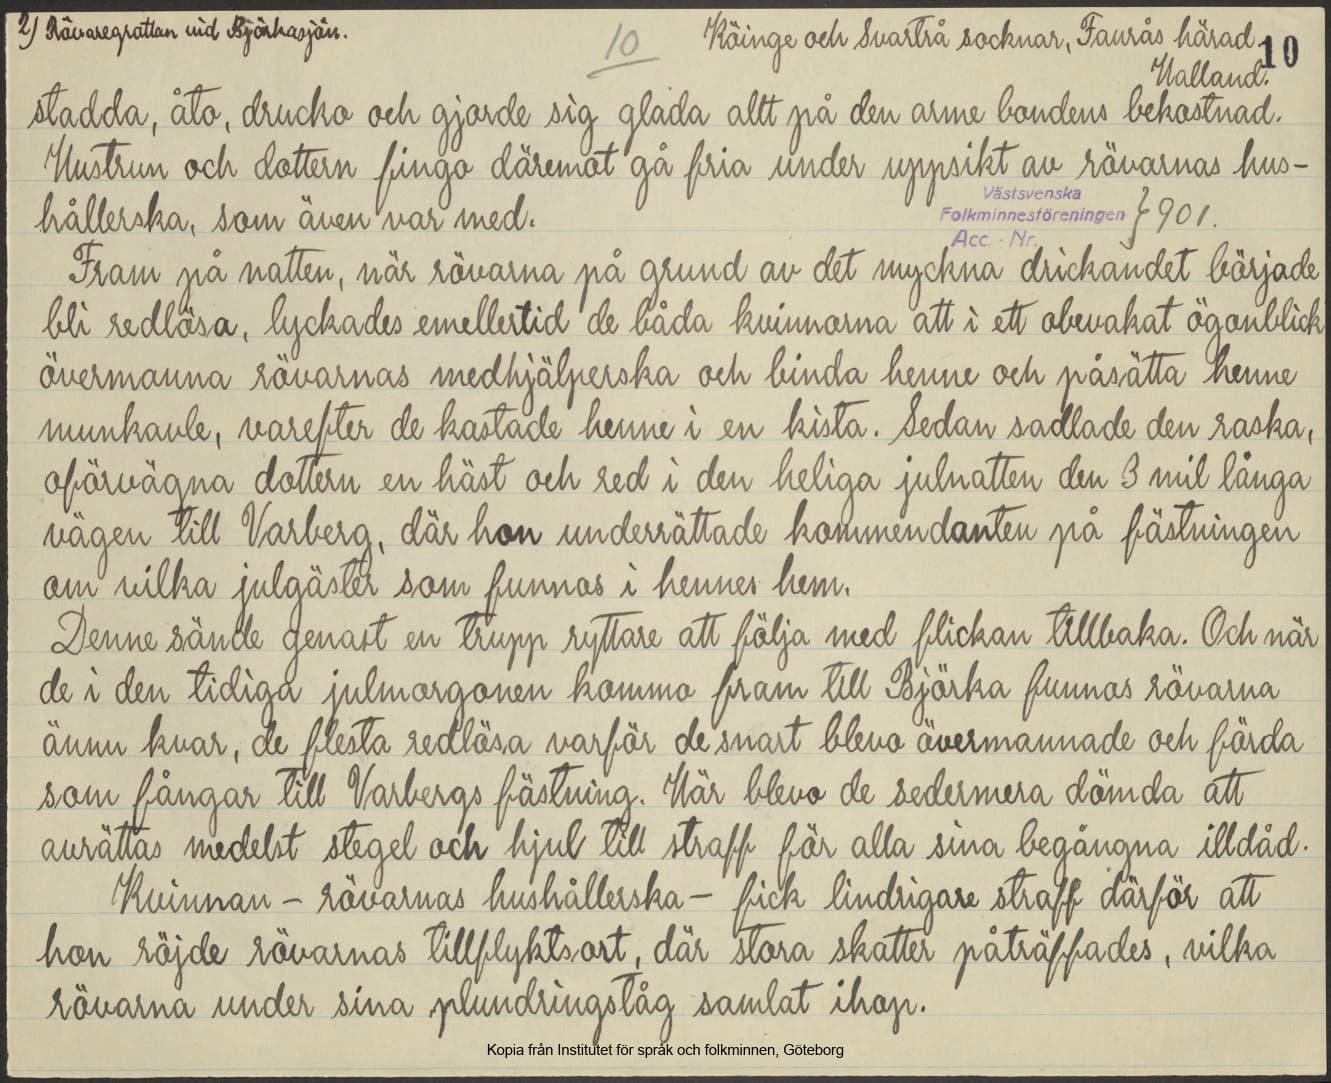 2) Rövaregrottan vid Björkasjön.
10
Köinge och Svartrå socknar, Faurås härad.
10
Halland.
stadda, åto, drucko och gjorde sig glada allt på den arme bondens bekostnad.
Hustrun och dottern fingo däremot gå fria under uppsikt av rövarnas hus-
hållerska, som även var med.
Västsvenska
Folkminnesföreningen } 901.
Acc. - Nr.
Fram på natten, när rövarna på grund av det myckna drickandet började
bli redlösa, lyckades emellertid de båda kvinnorna att i ett obevakat ögonblick
övermanna rövarnas medhjälperska och binda henne och påsätta henne
munkavle, varefter de kastade henne i en kista. Sedan sadlade den raska,
oförvägna dottern en häst och red i den heliga julnatten den 3 mil långa
vägen till Varberg, där hon underrättade kommendanten på fästningen
om vilka julgäster som funnos i hennes hem.
Denne sände genast en trupp ryttare att följa med flickan tillbaka. Och när
de i den tidiga julmorgonen kommo fram till Björka funnos rövarna
ännu kvar, de flesta redlösa varför de snart blevo övermannade och förda
som fångar till Varbergs fästning. Här blevo de sedermera dömda att
avrättas medelst stegel och hjul till straff för alla sina begångna illdåd.
Kvinnan – rövarnas hushållerska – fick lindrigare straff därför att
hon röjde rövarnas tillflyktsort, där stora skatter påträffades, vilka
rövarna under sina plundringståg samlat ihop.
Kopia från Institutet för språk och folkminnen, Göteborg